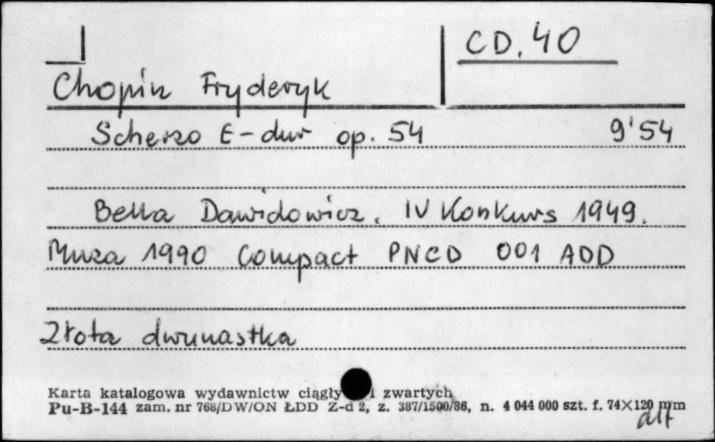 CD. 40
Chopin Fryderyk
Scherzo E-dur op. 54 9'54
Bella Dawidowicz. IV Konkurs 1949.
Muza 1990 Compact PNCD 001 ADD
Złota dwunastka
Karta katalogowa wydawnictw zwartych
Pu-B-144 zam. nr 768/DW/ON ŁDD Z-d 2, z. 387/1500/86, n. 4 044 000 szt. f. 74×120 mm